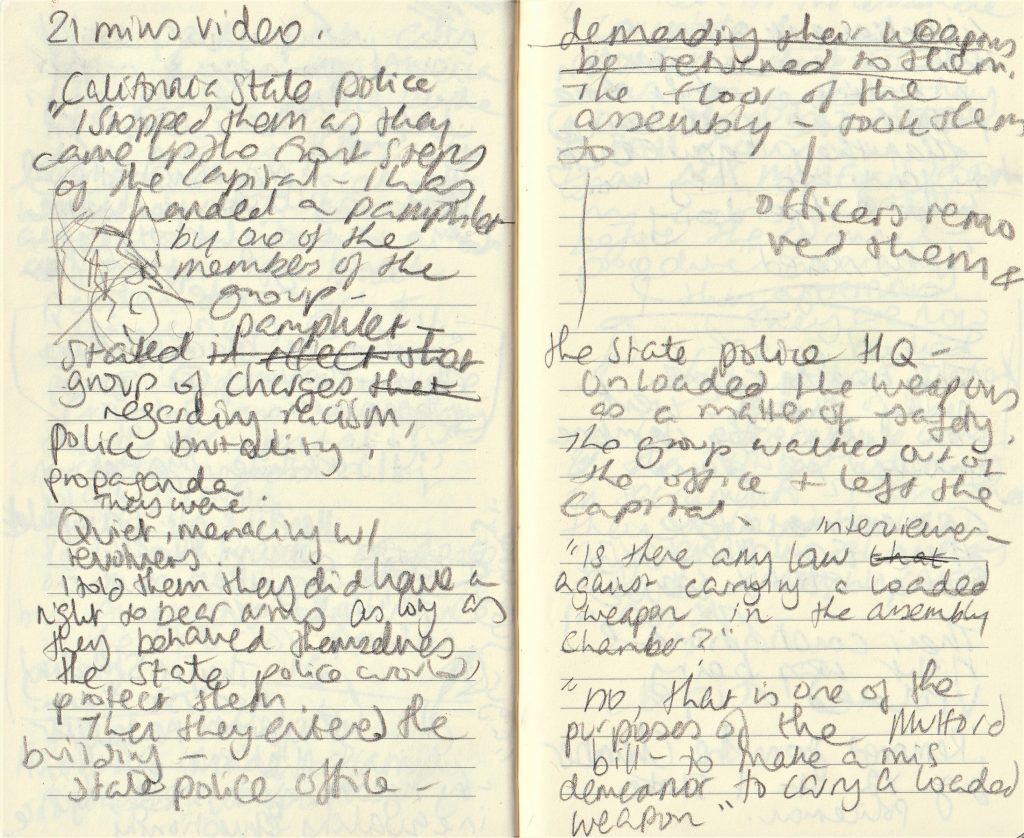 21 mins video.
"California State police
"I stopped them as they
came up the front steps
of the Capital - I was
handed a pamphlet
by one of the
members of the
group -
pamphlet -
stated in effect that
group of charges that
regarding racism,
police brutality,
propaganda
They were.
Quiet, menacing w/
revolvers.
I told them they did have a
right to bear arms as long as
they behaved themselves
the state police would
protect them.
Then they entered the
building -
State police office -
demanding their weapons
be returned to them.
The floor of the
assembly - took them
to
officers remo
ved them &
the state police HQ -
unloaded the weapons
as a matter of safety.
The group walked out of
the office + left the
Capital.
interviewer -
"Is there any law that
against carrying a loaded
weapon in the assembly
chamber?"
"no, that is one of the
purposes of the Mulford
bill - to make a mis
demeanor to carry a loaded
weapon"